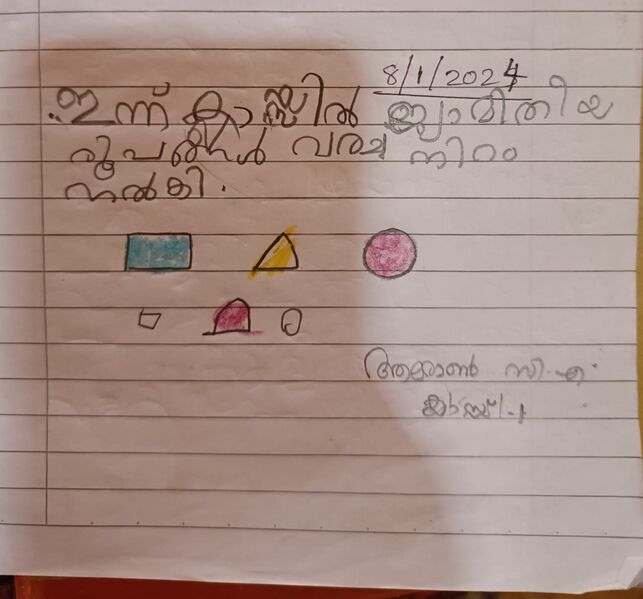 8/1/2024
ഇന്ന് ക്ലാസ്സിൽ ജ്യാമിതിയ
രൂപങ്ങൾ വരച്ച് നിറം
നൽകി.
ആരോൺ സി.എ
ക്ലാസ്സ്-1